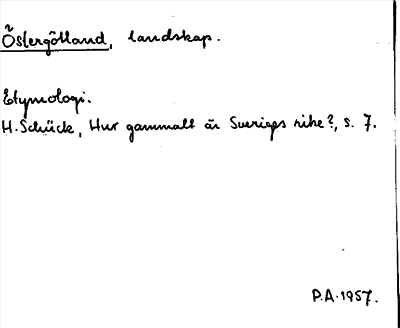 Östergötland, landskap.
Etymologi.
H. Schück, Hur gammalt är Sveriges rike?, s. 7.
P.A. 1957.